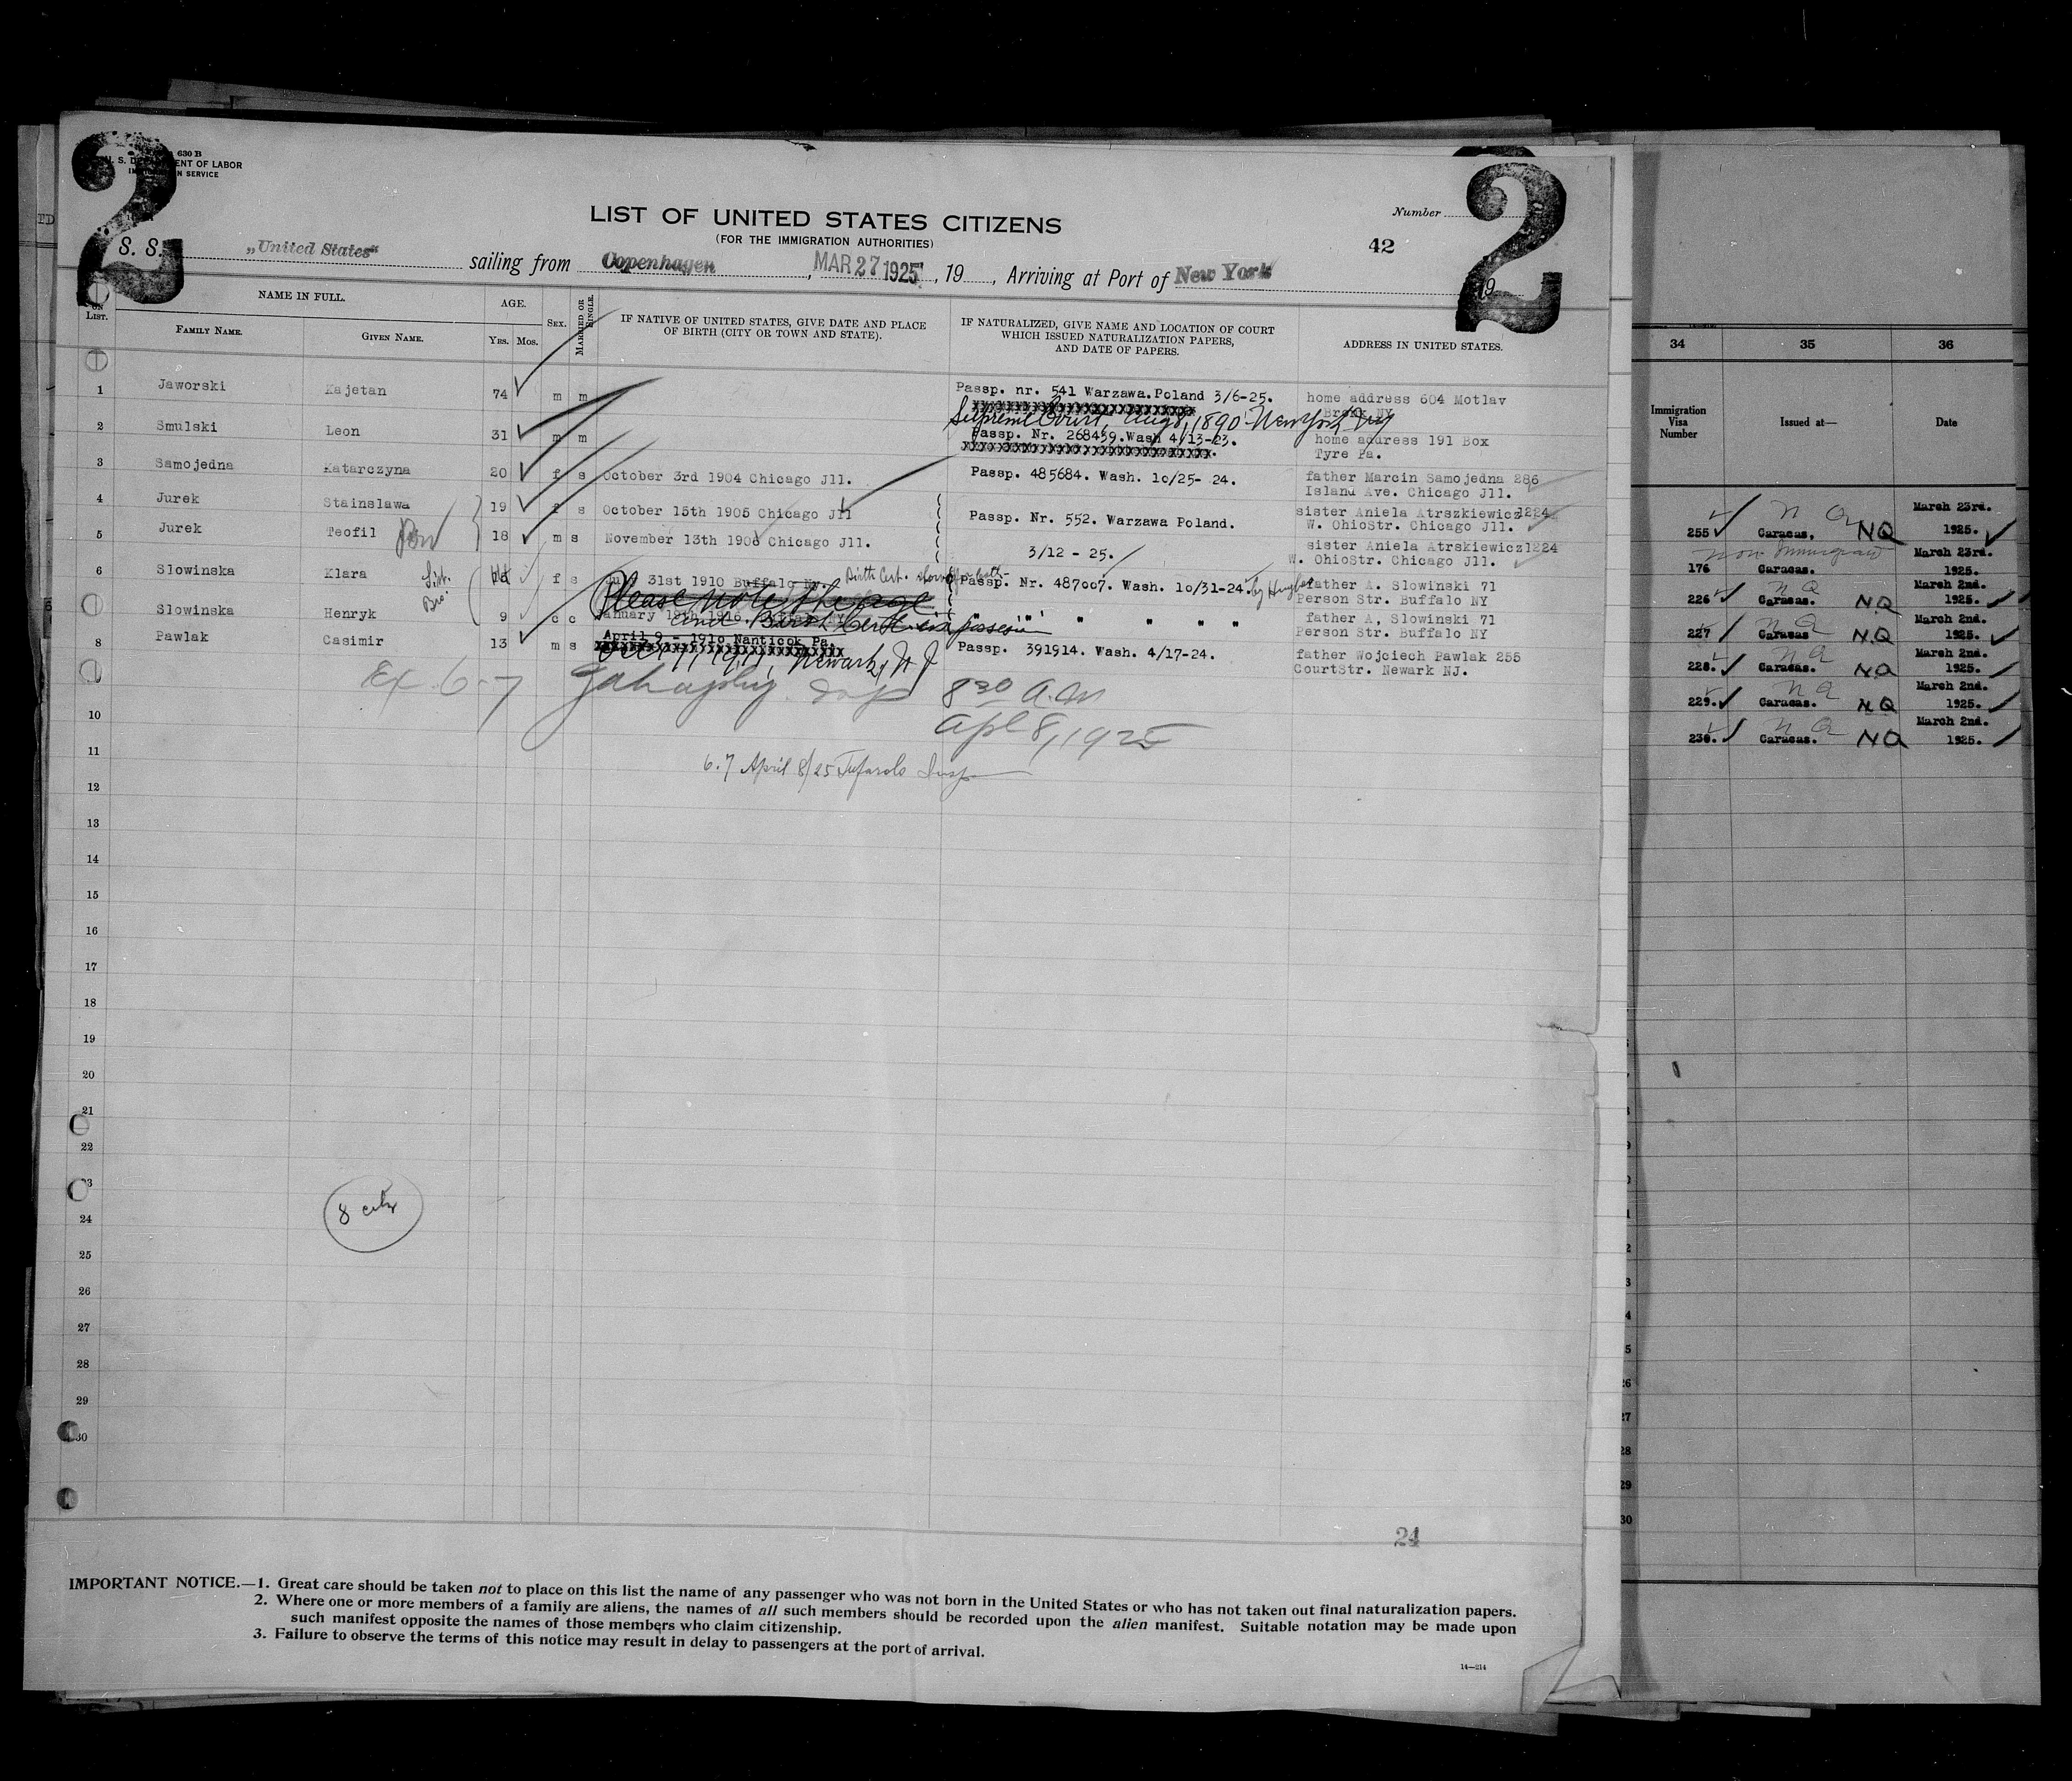 2
2
630 B
U. S. DEPARTMENT OF LABOR
IMMIGRATION SERVICE
LIST OF UNITED STATES CITIZENS
(FOR THE IMMIGRATION AUTHORITIES)
Number
42
S. S. „United States" sailing from Copenhagen, MAR 27 1925, 19, Arriving at Port of New York 19
LIST.
NAME IN FULL.
FAMILY NAME.
GIVEN NAME.
AGE.
YRS. MOS.
SEX.
MARRIED OR SINGLE.
IF NATIVE OF UNITED STATES, GIVE DATE AND PLACE
OF BIRTH (CITY OR TOWN AND STATE).
IF NATURALIZED, GIVE NAME AND LOCATION OF COURT
WHICH ISSUED NATURALIZATION PAPERS,
AND DATE OF PAPERS.
ADDRESS IN UNITED STATES.
1 Jaworski Kajetan 74 m m Passp. nr. 541 Warzawa.Poland 3/6-25. home address 604 Motlav
Bronx NY
Supreme Court, Aug 8, 1890 New York
2 Smulski Leon 31 m m Passp. Nr. 268459.Wash 4/13-23. home address 191 Box
Tyre Pa.
3 Samojedna Katarczyna 20 f s October 3rd 1904 Chicago Jll. Passp. 485684. Wash. 1o/25- 24. father Marcin Samojedna 286
Island Ave. Chicago Jll.
4 Jurek Stainslawa 19 f s October 15th 1905 Chicago Jll Passp. Nr. 552. Warzawa Poland. sister Aniela Atrszkiewicz 1224
W. OhioStr. Chicago Jll.
5 Jurek Teofil 18 m s November 13th 1906 Chicago Jll. 3/12 - 25. sister Aniela Atrskiewicz1224
W. OhioStr. Chicago Jll.
6 Slowinska Klara Sist. f s 31st 1910 Buffalo Ny. Birth Cert. Passp. Nr. 487oo7. Wash. 1o/31-24. father A. Slowinski 71
Person Str. Buffalo NY
Please note the age
7 Slowinska Henryk Bro. 9 c c January 19th 1916. " " " " " father A, Slowinski 71
Person Str. Buffalo NY
and Birth Cert. in possesion
8 Pawlak Casimir 13 m s April 9 - 191o Nanticok Pa. Passp. 391914. Wash. 4/17-24. father Wojciech Pawlak 255
CourtStr. Newark NJ.
Newark, N J
Ex. 6-7 Insp 8 30 a.m
Apl 8, 1925
6.7 April 8/25 Insp
10
11
12
13
14
15
16
17
18
19
20
21
22
23
24
25
26
27
28
29
30
24
IMPORTANT NOTICE.—1. Great care should be taken not to place on this list the name of any passenger who was not born in the United States or who has not taken out final naturalization papers.
2. Where one or more members of a family are aliens, the names of all such members should be recorded upon the alien manifest. Suitable notation may be made upon
such manifest opposite the names of those members who claim citizenship.
3. Failure to observe the terms of this notice may result in delay to passengers at the port of arrival.
14—214
34 35 36
Immigration
Visa
Number
Issued at—
Date
255 Caracas. NQ March 23rd. 1925.
176 Non Immigrant Caracas. March 23rd. 1925.
226 Caracas. NQ March 2nd. 1925.
227 Caracas NQ March 2nd. 1925.
228. Caracas. NQ March 2nd. 1925.
229. Caracas. NQ March 2nd. 1925.
230. Caracas. NQ March 2nd. 1925.